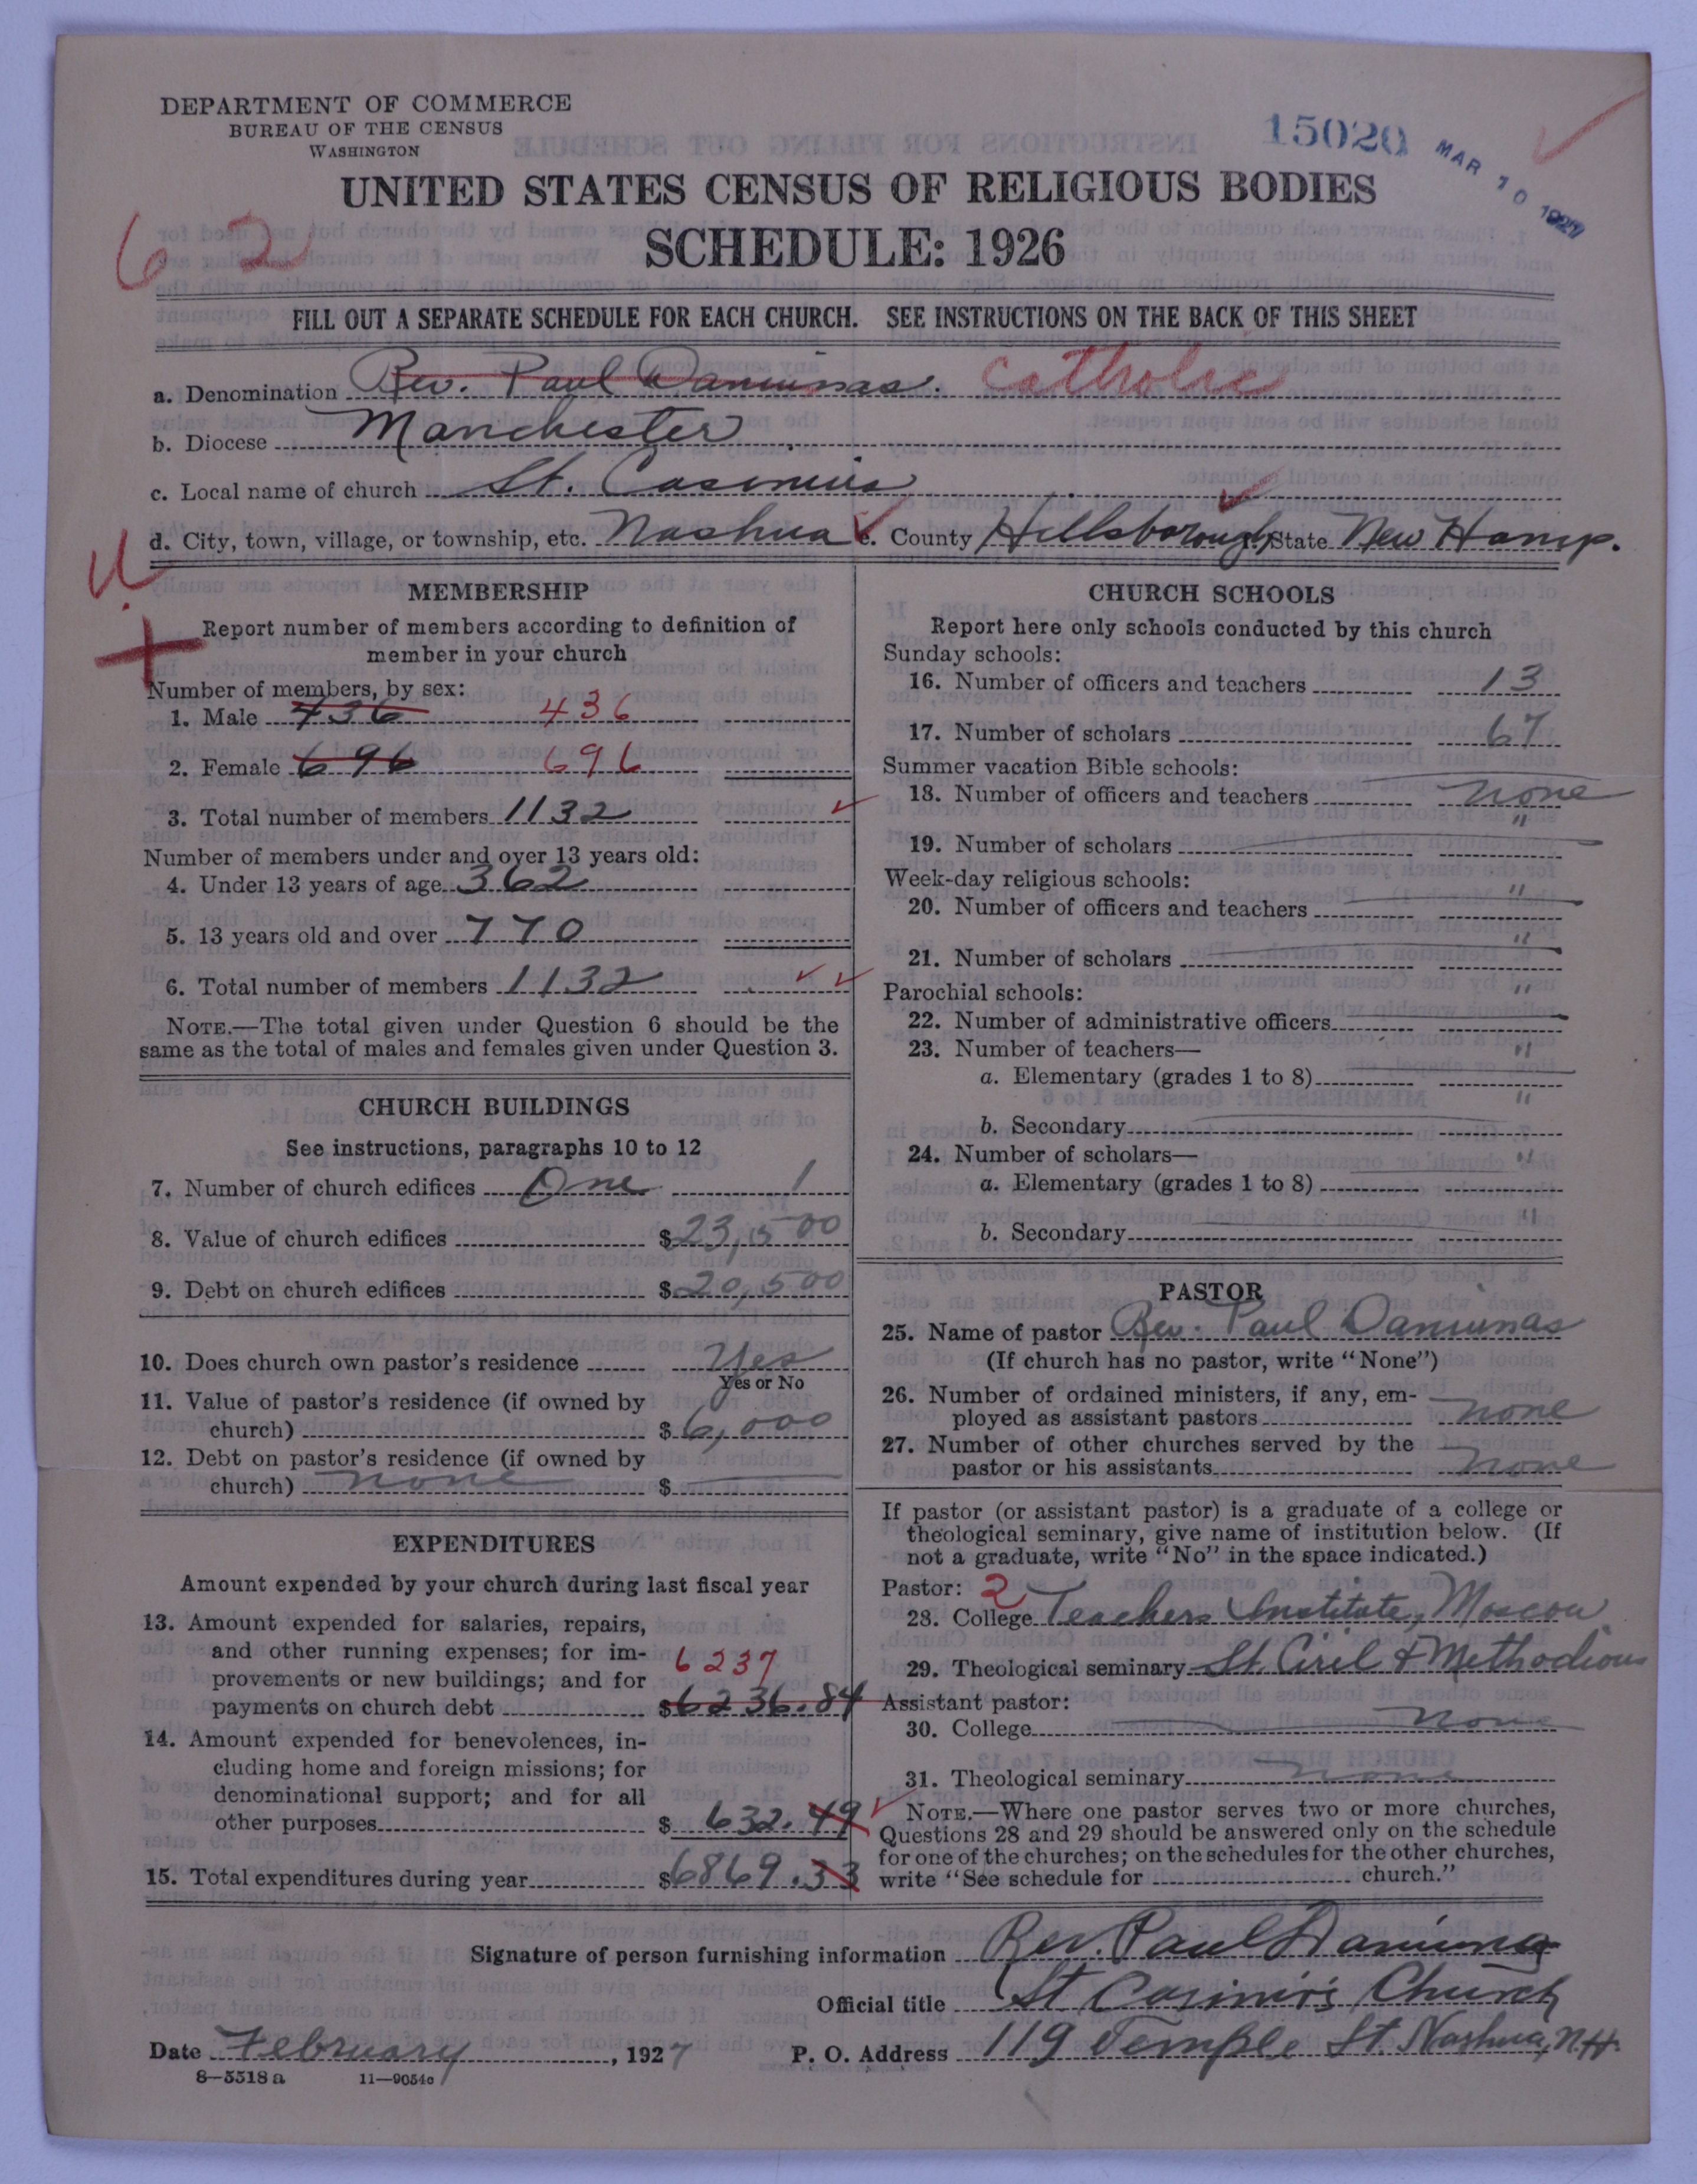 DEPARTMENT OF COMMERCE
BUREAU OF THE CENSUS
WASHINGTON
15020 MAR 10 1927
UNITED STATES CENSUS OF RELIGIOUS BODIES
SCHEDULE: 1926
6 2
FILL OUT A SEPARATE SCHEDULE FOR EACH CHURCH. SEE INSTRUCTIONS ON THE BACK OF THIS SHEET
a. Denomination Rev. Paul Daniunas. Catholic
b. Diocese Manchester
c. Local name of church St. Casimirs
d. City, town, village, or township, etc. Nashua e. County Hillsborough f. State New Hamp.
MEMBERSHIP
Report number of members according to definition of
member in your church
Number of members, by sex:
1. Male 436 436
2. Female 696 696
3. Total number of members 1132
Number of members under and over 13 years old:
4. Under 13 years of age 362
5. 13 years old and over 770
6. Total number of members 1132
NOTE.—The total given under Question 6 should be the
same as the total of males and females given under Question 3.
CHURCH BUILDINGS
See instructions, paragraphs 10 to 12
7. Number of church edifices One 1
8. Value of church edifices $23,500
9. Debt on church edifices $20,500
10. Does church own pastor's residence Yes
Yes or No
11. Value of pastor's residence (if owned by
church) $6,000
12. Debt on pastor's residence (if owned by
church) none $
EXPENDITURES
Amount expended by your church during last fiscal year
13. Amount expended for salaries, repairs,
and other running expenses; for im-
provements or new buildings; and for 6237
payments on church debt $6236.84
14. Amount expended for benevolences, in-
cluding home and foreign missions; for
denominational support; and for all
other purposes $ 632.49
15. Total expenditures during year $6869.33
CHURCH SCHOOLS
Report here only schools conducted by this church
Sunday schools:
16. Number of officers and teachers 13
17. Number of scholars 67
Summer vacation Bible schools:
18. Number of officers and teachers none
19. Number of scholars "
Week-day religious schools:
20. Number of officers and teachers "
21. Number of scholars "
Parochial schools:
22. Number of administrative officers "
23. Number of teachers—
a. Elementary (grades 1 to 8) "
b. Secondary "
24. Number of scholars—
a. Elementary (grades 1 to 8) "
b. Secondary "
PASTOR
25. Name of pastor Rev. Paul Daniunas
(If church has no pastor, write "None")
26. Number of ordained ministers, if any, em-
ployed as assistant pastors none
27. Number of other churches served by the
pastor or his assistants none
If pastor (or assistant pastor) is a graduate of a college or
theological seminary, give name of institution below. (If
not a graduate, write "No" in the space indicated.)
Pastor: 2
28. College Teachers Institute, Moscow
29. Theological seminary St Ciril & Methodious
Assistant pastor:
30. College none
31. Theological seminary none
NOTE.—Where one pastor serves two or more churches,
Questions 28 and 29 should be answered only on the schedule
for one of the churches; on the schedules for the other churches,
write "See schedule for church."
Signature of person furnishing information Rev. Paul Daniunas
Official title St Casimir's Church
Date February, 1927 P. O. Address 119 Temple St. Nashua, N.H.
8—5518 a 11—9054c